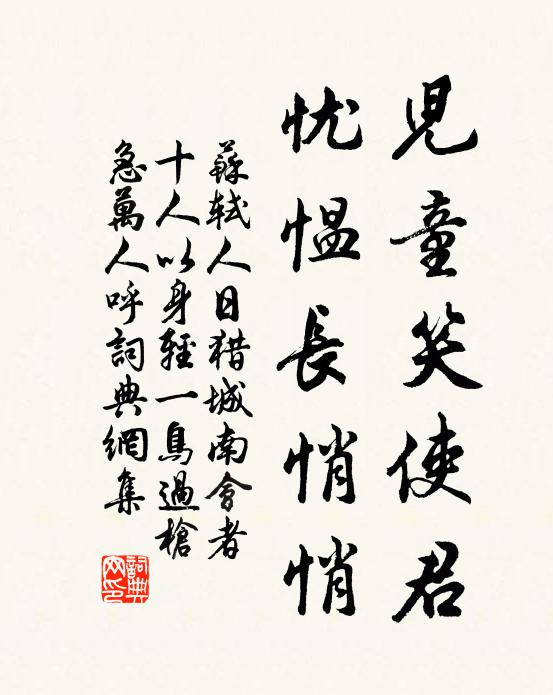 兒童笑使君
忧愠長悄悄
蘇軾人日猎城南會者
十人以身輕一鳥過槍
急萬人呼詞典網集
詞典网印